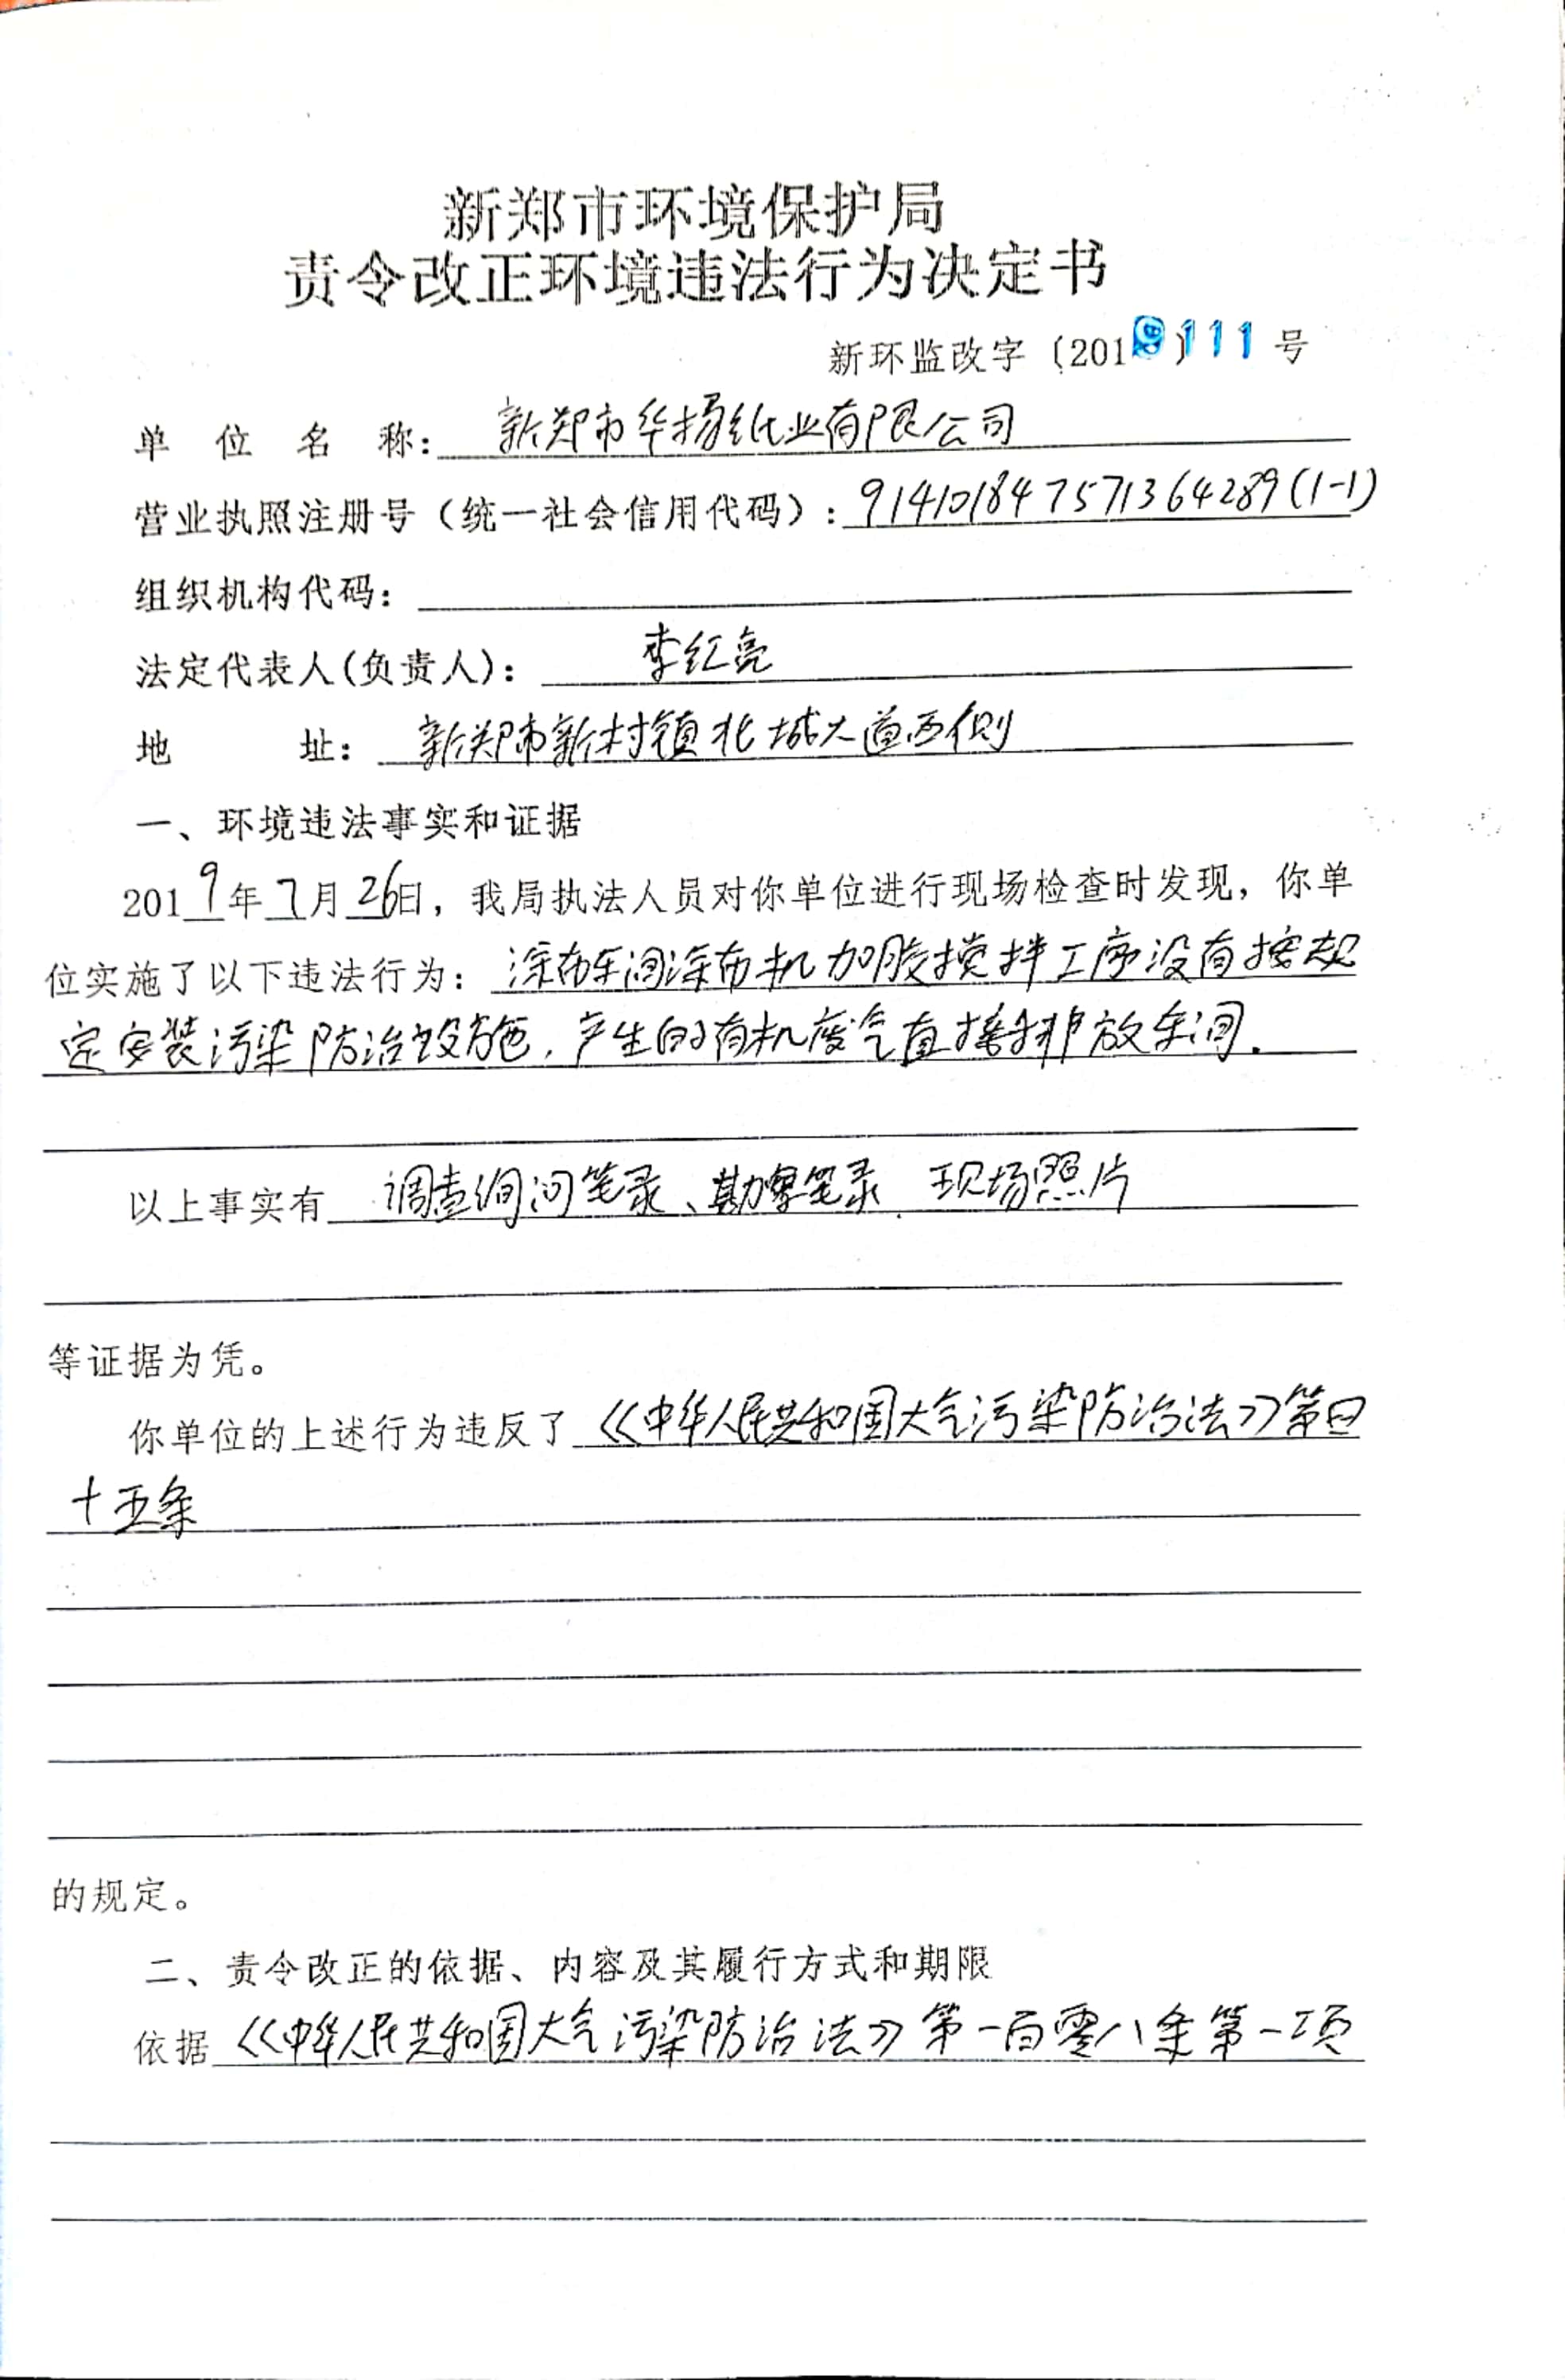 新郑市环境保护局
责令改正环境违法行为决定书
新环监改字〔2019〕111号
单位名称：新郑市华扬纸业有限公司
营业执照注册号（统一社会信用代码）：914101847571364289(1-1)
组织机构代码：
法定代表人(负责人)：李红亮
地址：新郑市新村镇北城大道西侧
一、环境违法事实和证据
2019年7月26日，我局执法人员对你单位进行现场检查时发现，你单
位实施了以下违法行为：涂布车间涂布机加胶搅拌工序没有按规
定安装污染防治设施，产生的有机废气直接排放车间.
以上事实有调查询问笔录、勘察笔录、现场照片
等证据为凭。
你单位的上述行为违反了《中华人民共和国大气污染防治法》第四
十五条
的规定。
二、责令改正的依据、内容及其履行方式和期限
依据《中华人民共和国大气污染防治法》第一百零八条第一项